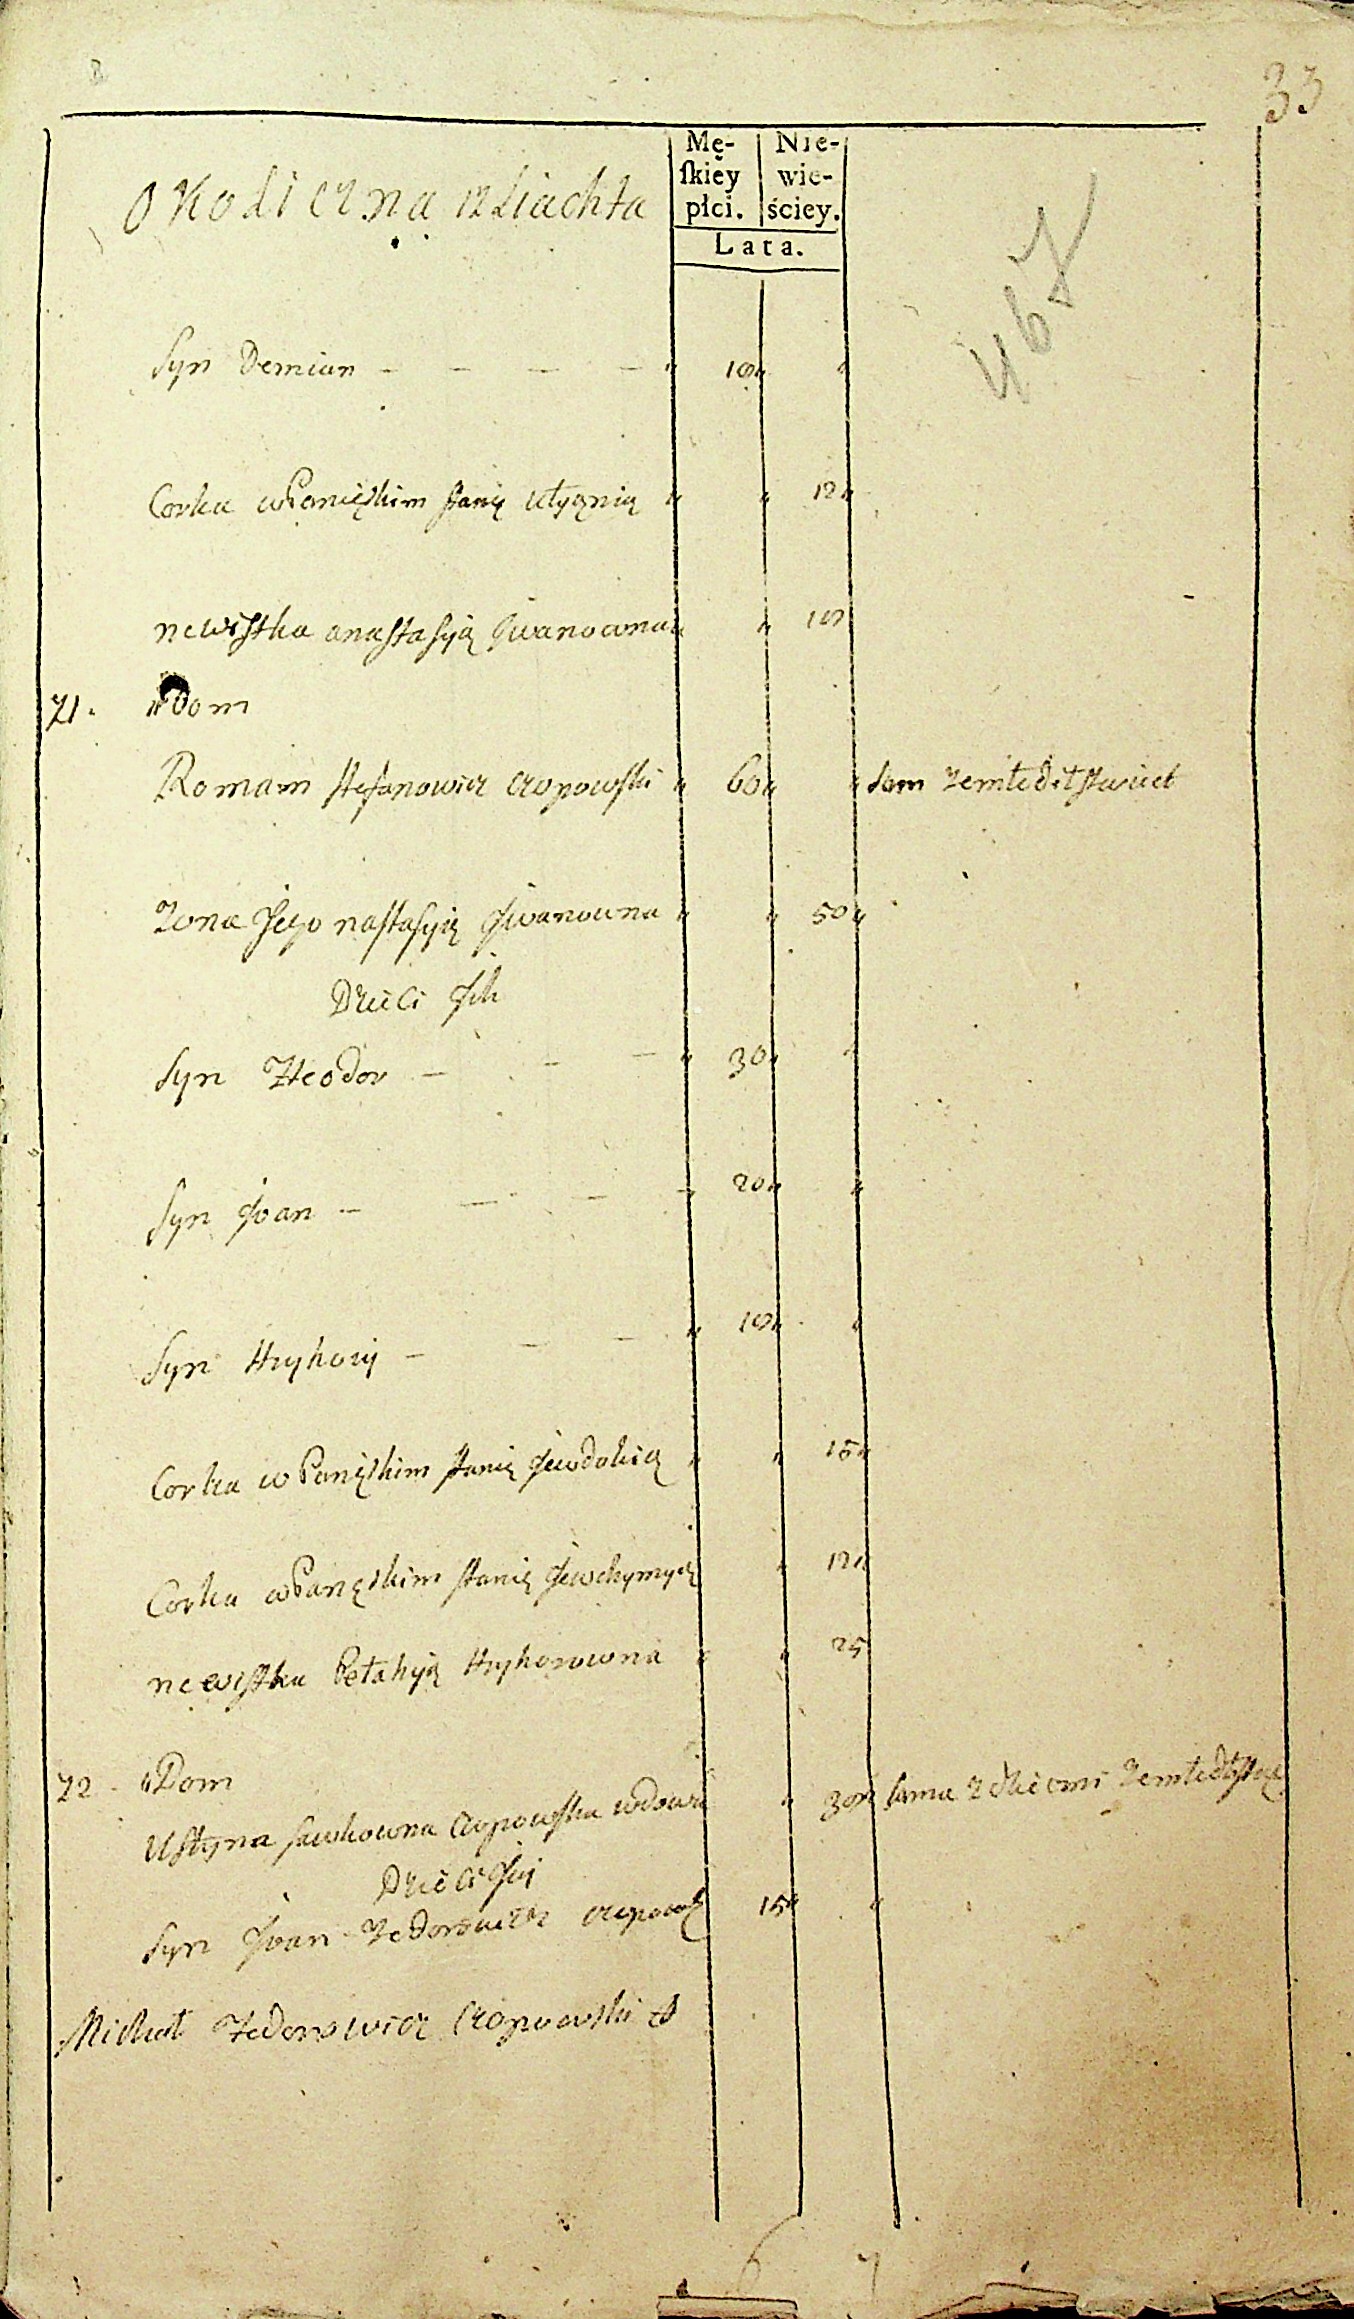 33
Okoliczna ızliachta
Mę-
ſkiey
płci.
Nie-
wie-
ściey.
Lata.
467
Syn Demian - - - - " 10 " "
Corka w Panięskim stanię " " 12 "
newistka anastasyią Jwanowna " " 10
71. " Dom
Romam Stefanowicz Czopowski " 60 " " Sam
Zona Jego nastasyią Jwanowna " " 50 "
Dzieci Jch
Syn Fteodor - - - " 30 " "
Syn Jvan - - - - 20 " "
Syn Hryhoriy - - - " 10 " "
Corka w Panęskim stanię Jewdokią " " 15 "
Corka w Panęskim stanię Jewchymyią " 12 "
newistka Pełahyią Hryhorowna " " 25
72 " Dom
Ustyna Sawkowna Czopowska wdowa " 30 " Sama z dziećmi
Dzieci Jey
Syn Jvan Fedorowicz 15 " "
Michał Fedorowicz Czopowski
6 7